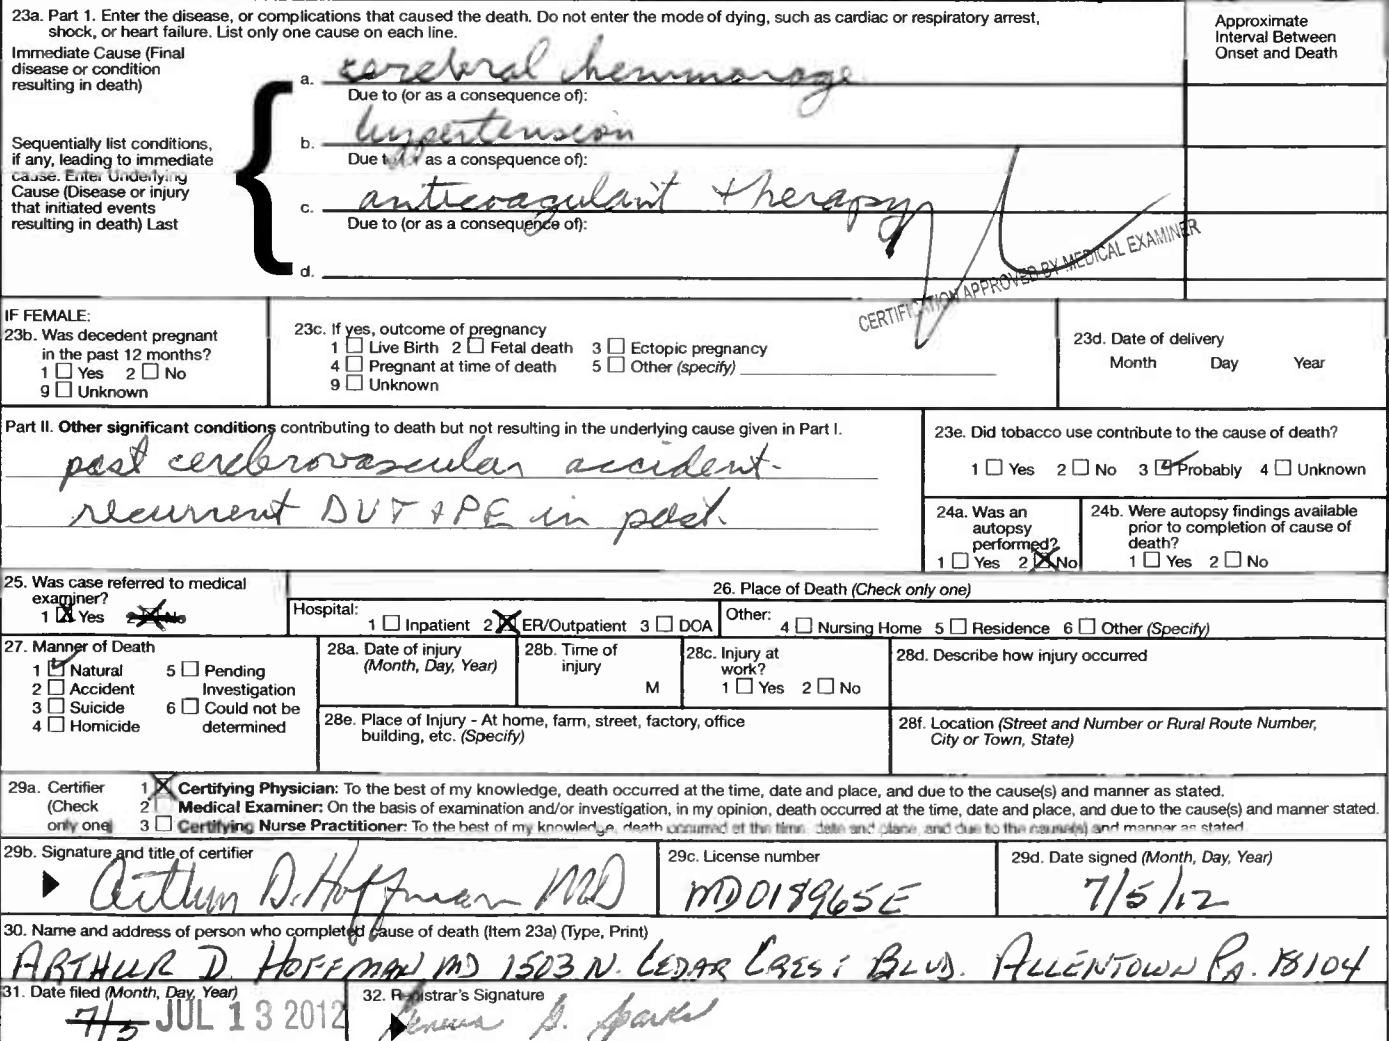 23a. Part 1. Enter the disease, or complications that caused the death. Do not enter the mode of dying, such as cardiac or respiratory arrest,
shock, or heart failure. List only one cause on each line.
Approximate
Interval Between
Onset and Death
Immediate Cause (Final
disease or condition
resulting in death)
a. cerebral hemmorage
Due to (or as a consequence of):
Sequentially list conditions,
if any, leading to immediate
cause. Enter Underlying
Cause (Disease or injury
that initiated events
resulting in death) Last
b. hypertension
Due to (or as a consequence of):
c. anticoagulant therapy
Due to (or as a consequence of):
d.
CERTIFICATION APPROVED BY MEDICAL EXAMINER
IF FEMALE:
23b. Was decedent pregnant
in the past 12 months?
1 Yes 2 No
9 Unknown
23c. If yes, outcome of pregnancy
1 Live Birth 2 Fetal death 3 Ectopic pregnancy
4 Pregnant at time of death 5 Other (specify)
9 Unknown
23d. Date of delivery
Month Day Year
Part II. Other significant conditions contributing to death but not resulting in the underlying cause given in Part I.
past cerebrovascular accident.
recurrent DVT + PE in past.
23e. Did tobacco use contribute to the cause of death?
1 Yes 2 No 3 Probably 4 Unknown
24a. Was an
autopsy
performed?
1 Yes 2 No
24b. Were autopsy findings available
prior to completion of cause of
death?
1 Yes 2 No
25. Was case referred to medical
examiner?
1 Yes 2 No
26. Place of Death (Check only one)
Hospital:
1 Inpatient 2 ER/Outpatient 3 DOA
Other:
4 Nursing Home 5 Residence 6 Other (Specify)
27. Manner of Death
1 Natural 5 Pending
2 Accident Investigation
3 Suicide 6 Could not be
4 Homicide determined
28a. Date of injury
(Month, Day, Year)
28b. Time of
injury
M
28c. Injury at
work?
1 Yes 2 No
28d. Describe how injury occurred
28e. Place of Injury - At home, farm, street, factory, office
building, etc. (Specify)
28f. Location (Street and Number or Rural Route Number,
City or Town, State)
29a. Certifier
(Check
only one)
1 Certifying Physician: To the best of my knowledge, death occurred at the time, date and place, and due to the cause(s) and manner as stated.
2 Medical Examiner: On the basis of examination and/or investigation, in my opinion, death occurred at the time, date and place, and due to the cause(s) and manner stated.
3 Certifying Nurse Practitioner: To the best of my knowledge, death occurred at the time, date and place, and due to the cause(s) and manner as stated.
29b. Signature and title of certifier
Arthur D. Hoffman MD
29c. License number
MD018965E
29d. Date signed (Month, Day, Year)
7/5/12
30. Name and address of person who completed cause of death (Item 23a) (Type, Print)
ARTHUR D. HOFFMAN MD 1503 N. CEDAR CREST BLVD. ALLENTOWN PA. 18104
31. Date filed (Month, Day, Year)
7/5 JUL 13 2012
32. Registrar's Signature
Geneva S. Sparks